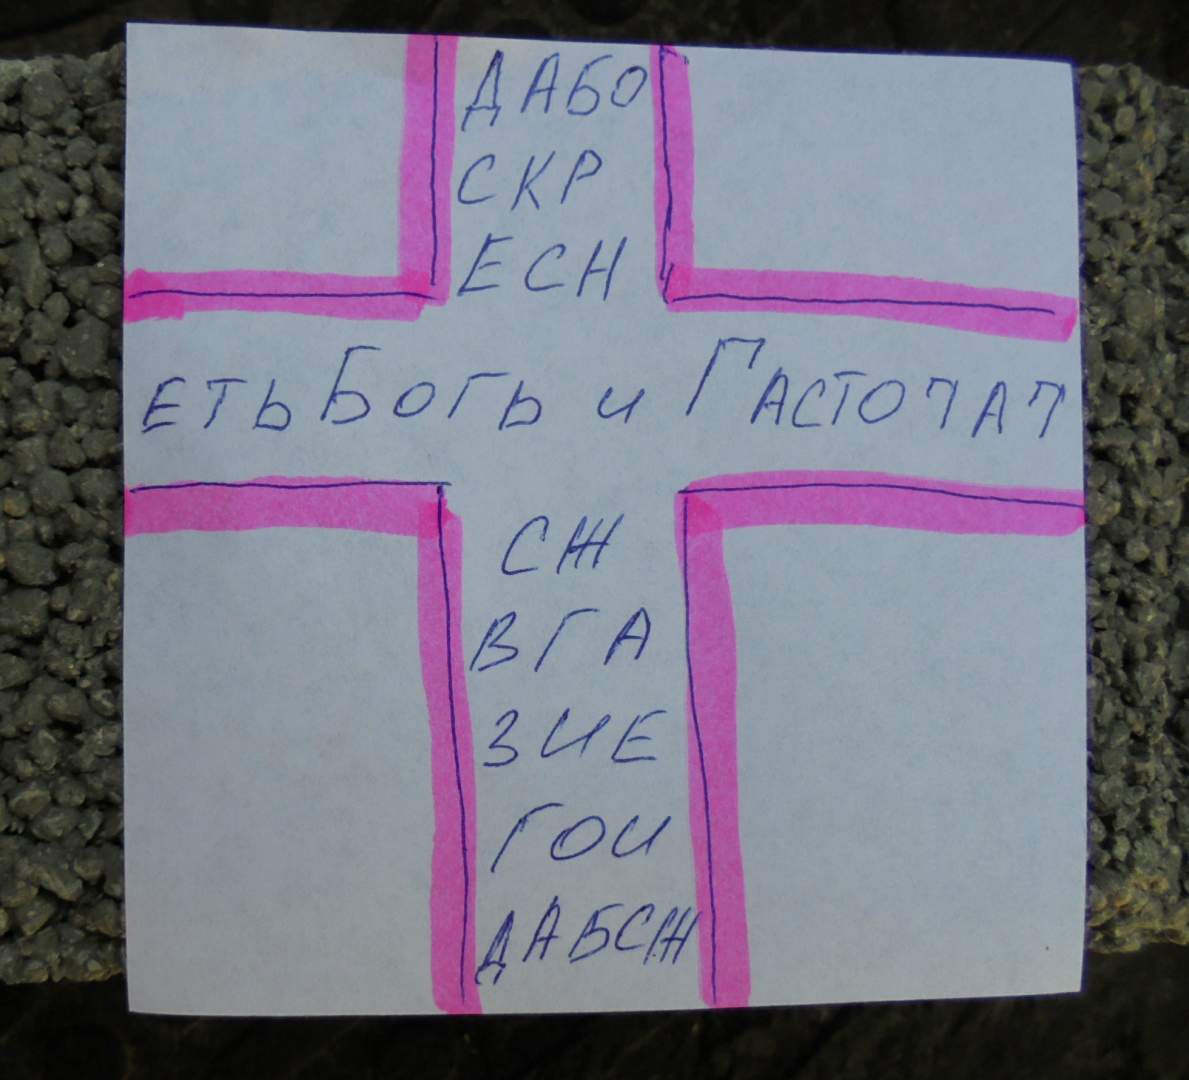 ДАБО
СКР
ЕСН
ЕТЬ БОГЬ И ГАСТОЧАТ
СЖ
ВГА
ЗИЕ
ГОИ
ДАБСЖ